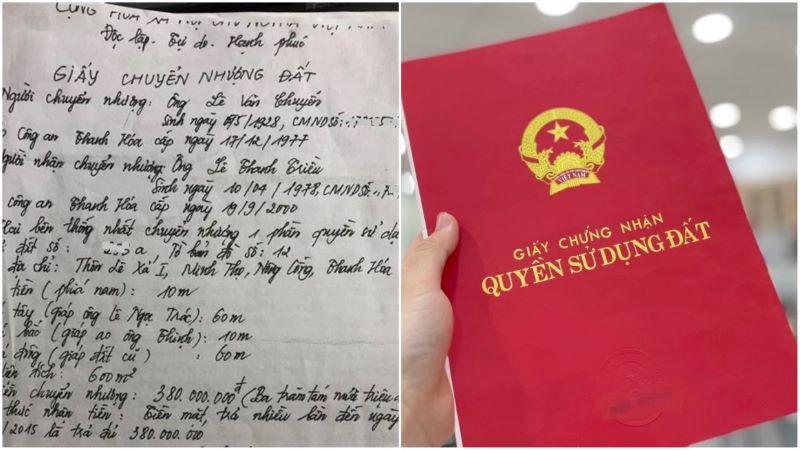 CỘNG HÒA XÃ HỘI CHỦ NGHĨA VIỆT NAM
Độc lập - Tự do - Hạnh phúc
GIẤY CHUYỂN NHƯỢNG ĐẤT
Người chuyển nhượng: Ông Lê Văn Chuyến
Sinh ngày /5/1928, CMND Số:
Công an Thanh Hóa cấp ngày 17/12/1977
Người nhận chuyển nhượng Ông Lê Thanh Triều
Sinh ngày 10/04/1978, CMND Số:
công an Thanh Hóa cấp ngày 19/9/2000
Hai bên thống nhất chuyển nhượng 1 phần quyền sử dụ
đất số: a Tờ bản đồ số: 12
địa chỉ: Thôn Lê Xá I, Minh Thọ, Nông Cống, Thanh Hóa
tiền (phía nam): 10m
tây (giáp ông lê Ngọc Trác): 60m
bắc (giáp ao ông Thịnh): 10m
đông (giáp đất cũ): 60m
tích: 600m²
chuyển nhượng: 380.000.000đ (Ba trăm tám mươi triệu
thức nhận tiền: Tiền mặt, trả nhiều lần đến ngày
/2015 là trả đủ 380.000.000
VIỆT NAM
GIẤY CHỨNG NHẬN
QUYỀN SỬ DỤNG ĐẤT